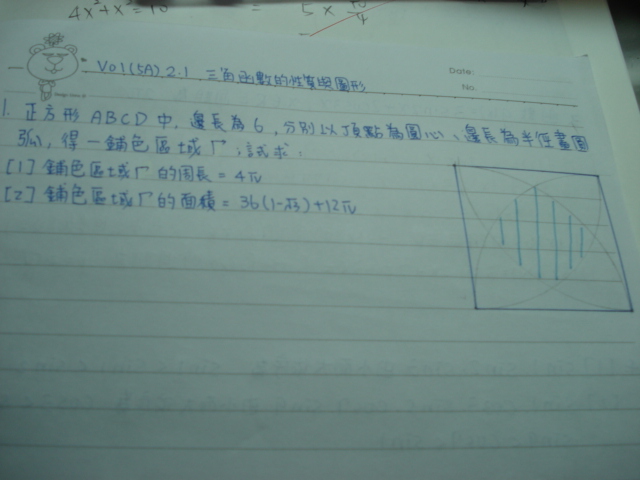 4x²+x²=10 = 5 ×
Vol(5A) 2.1 三角函數的性質與圖形
Date:
No.
1. 正方形 ABCD 中, 邊長為 6, 分別以頂點為圓心、邊長為半徑畫圓
弧, 得一鋪色區域 Γ, 試求:
[1] 鋪色區域 Γ 的周長 = 4π
[2] 鋪色區域 Γ 的面積 = 36(1-√3)+12π